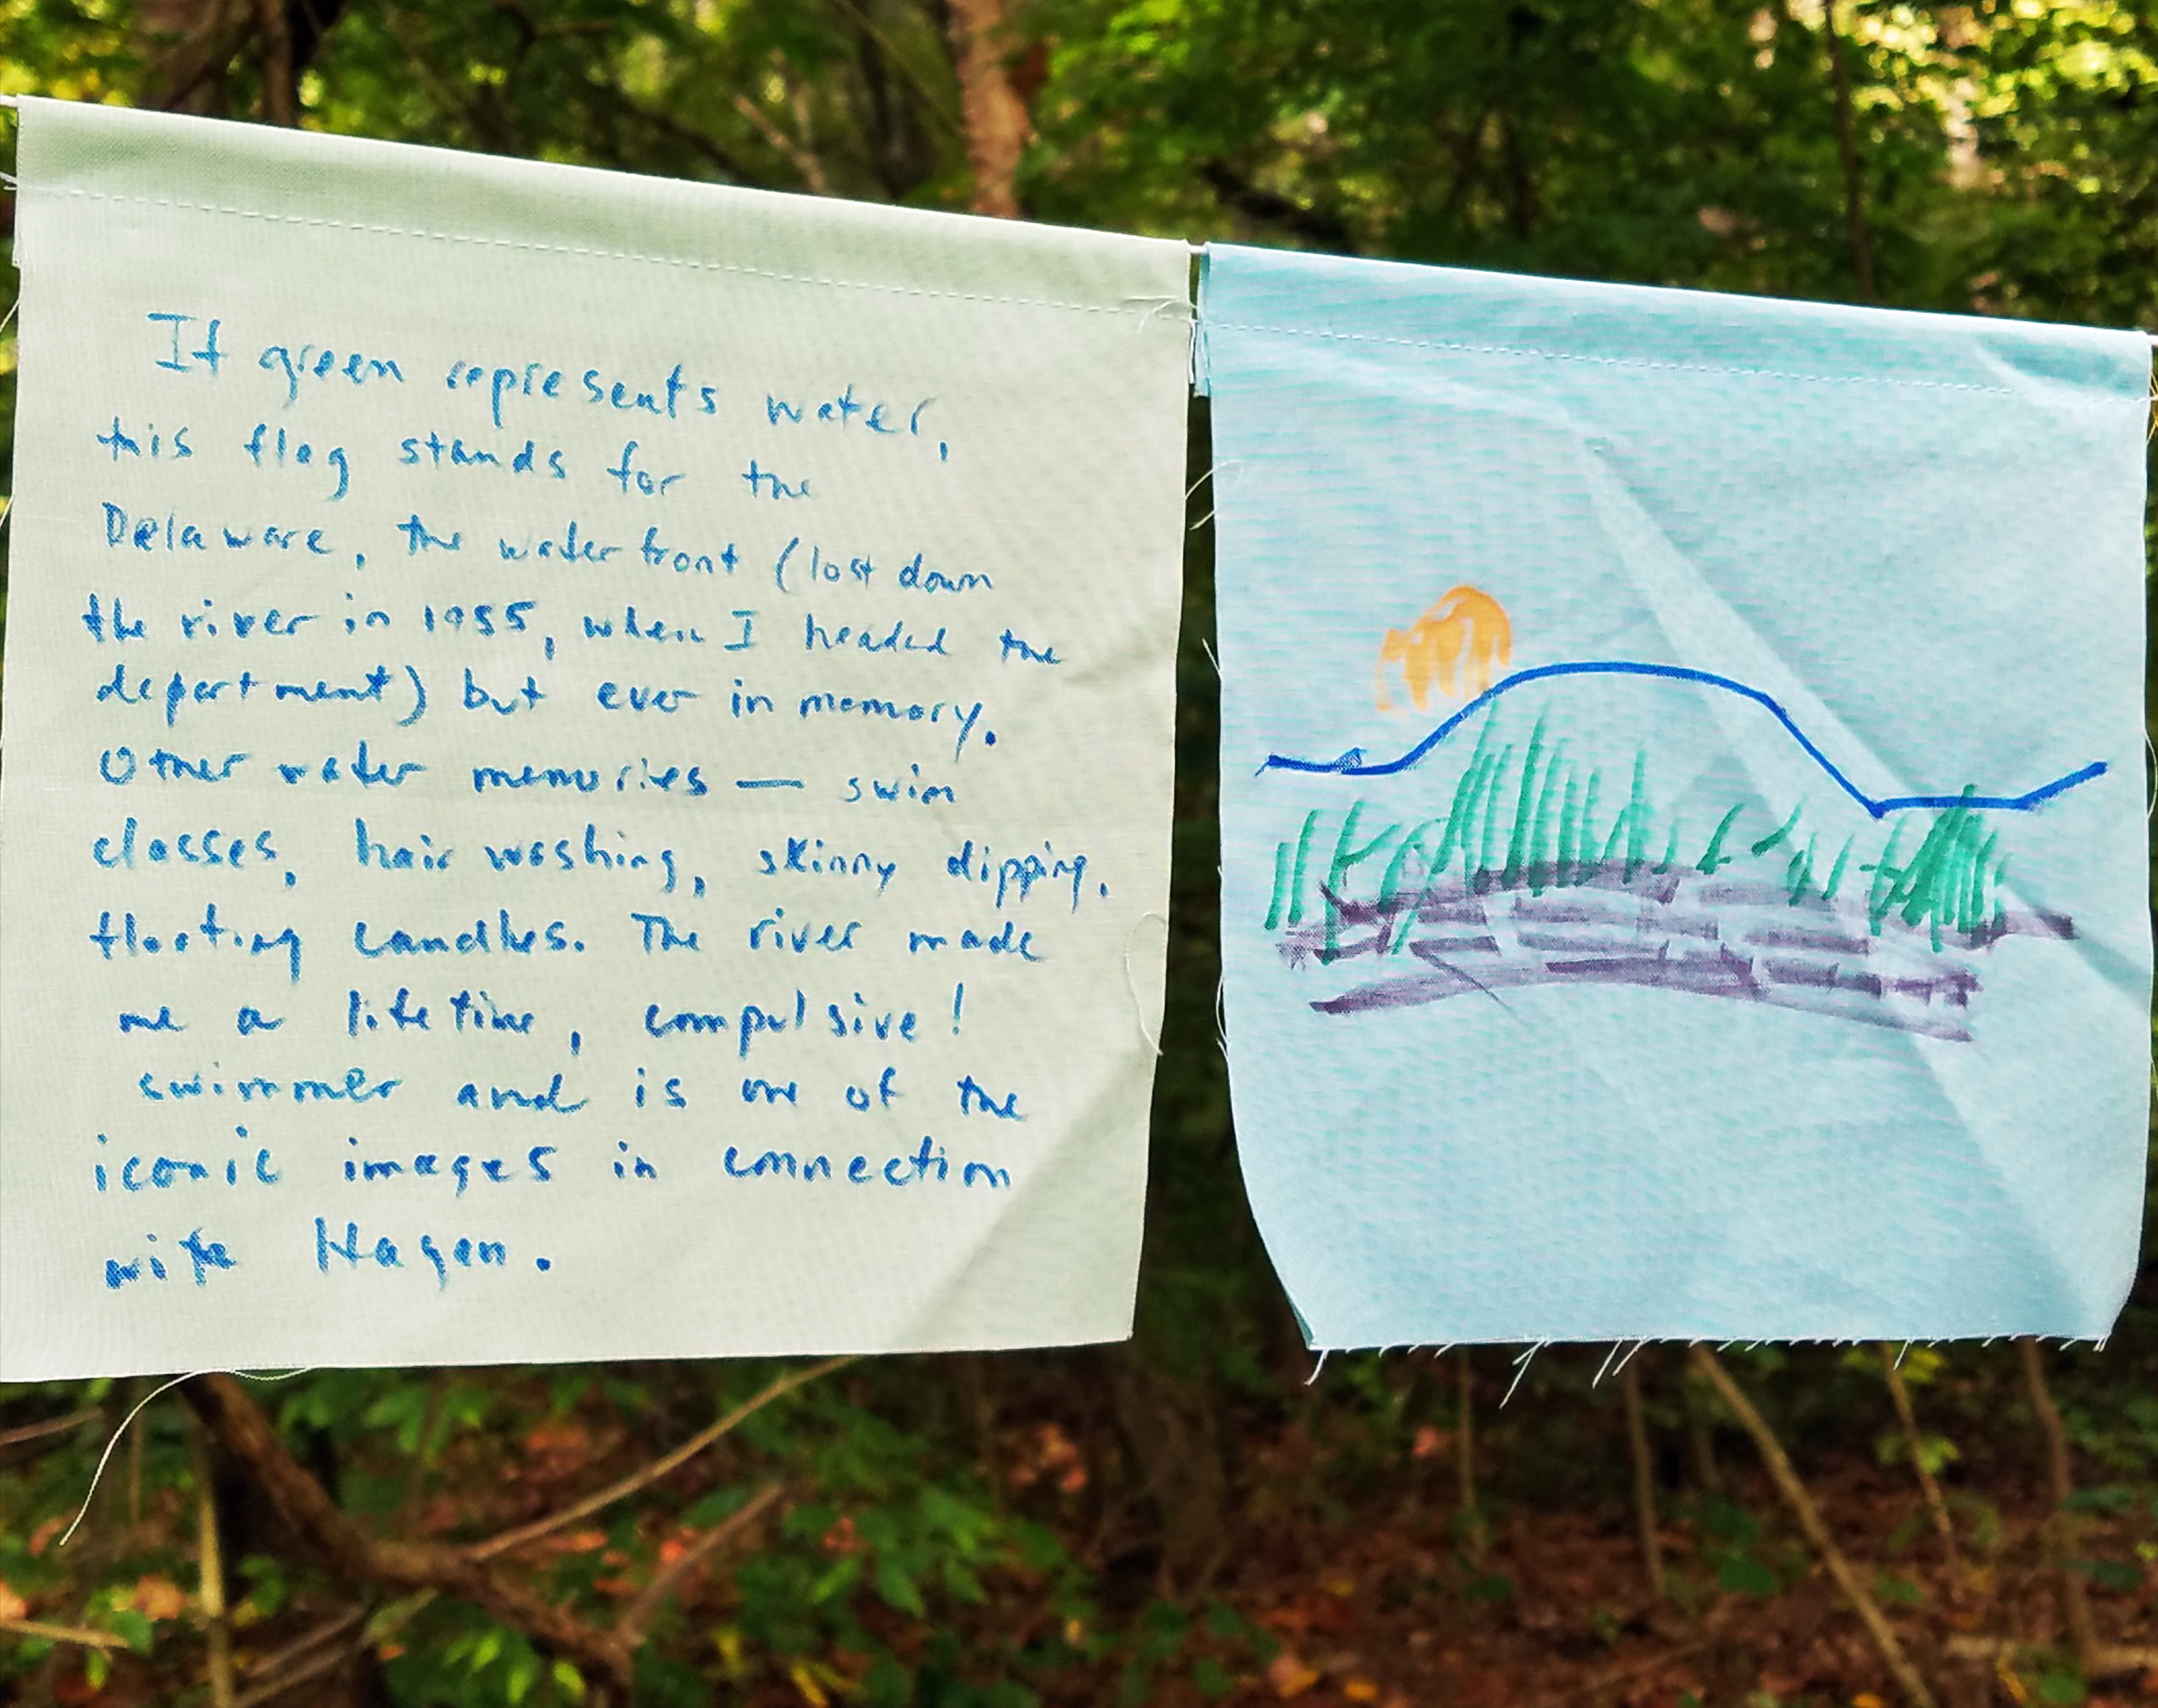 If green represents water,
this flag stands for the
Delaware, the waterfront (lost down
the river in 1955, when I headed the
department) but ever in memory.
Other water memories — swim
classes, hair washing, skinny dipping,
floating candles. The river made
me a lifetime, compulsive!
swimmer and is one of the
iconic images in connection
with Hagen.